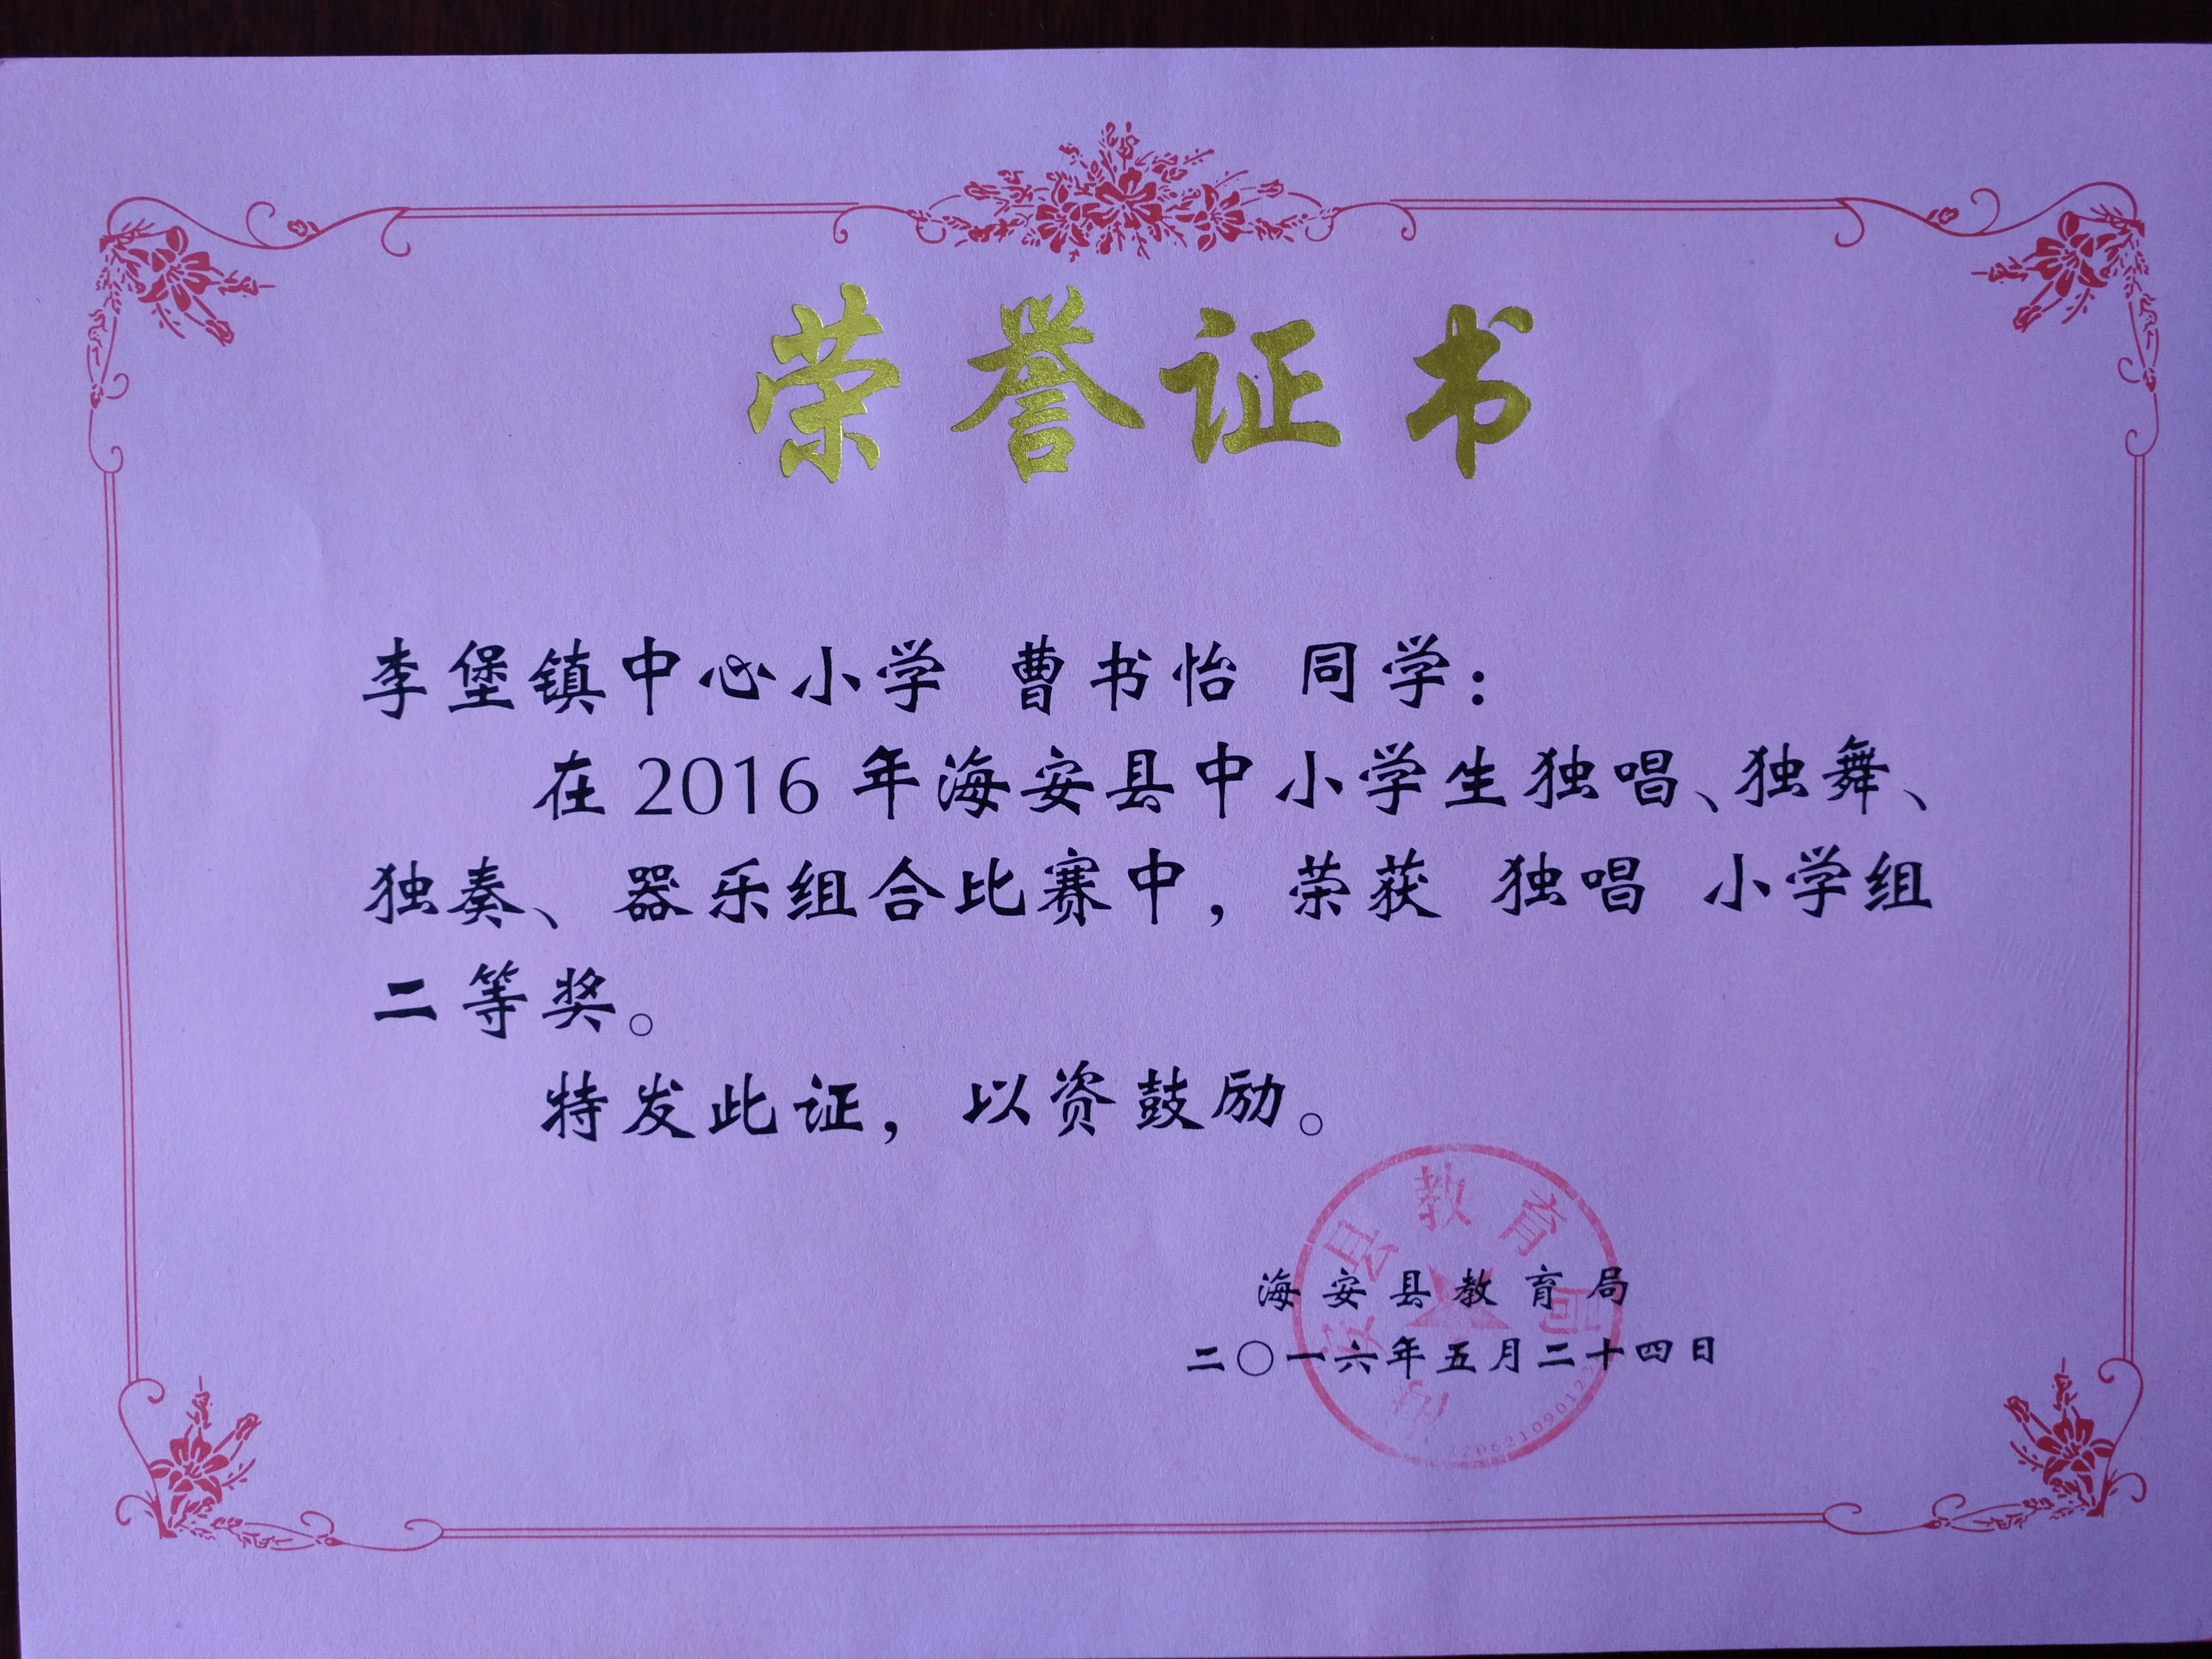 荣誉证书
李堡镇中心小学 曹书怡 同学：
在2016年海安县中小学生独唱、独舞、
独奏、器乐组合比赛中，荣获 独唱 小学组
二等奖。
特发此证，以资鼓励。
海安县教育局
二〇一六年五月二十四日
安县教育局